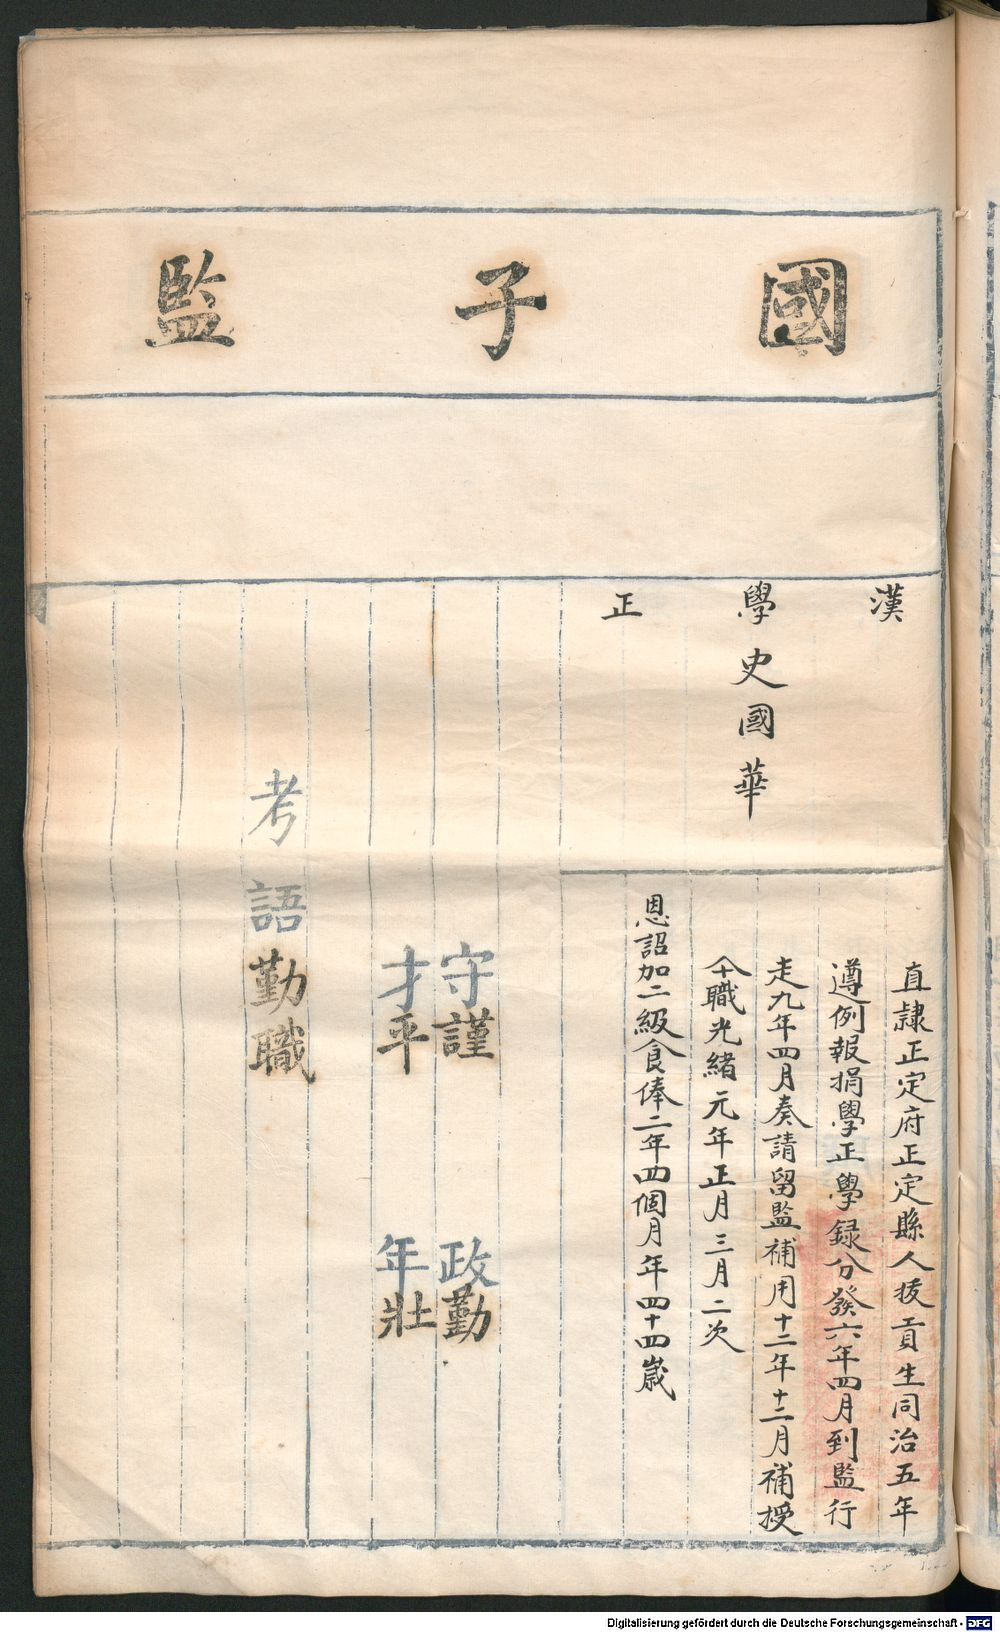 國子監
漢學正
史國華
直隸正定府正定縣人拔貢生同治五年
遵例報捐學正學録分發六年四月到監行
走九年四月奏請留監補用十二年十二月補授
今職光緒元年正月三月二次
恩詔加二級食俸二年四個月年四十四歲
守謹 政勤
才平 年壯
考語勤職
Digitalisierung gefördert durch die Deutsche Forschungsgemeinschaft - DFG